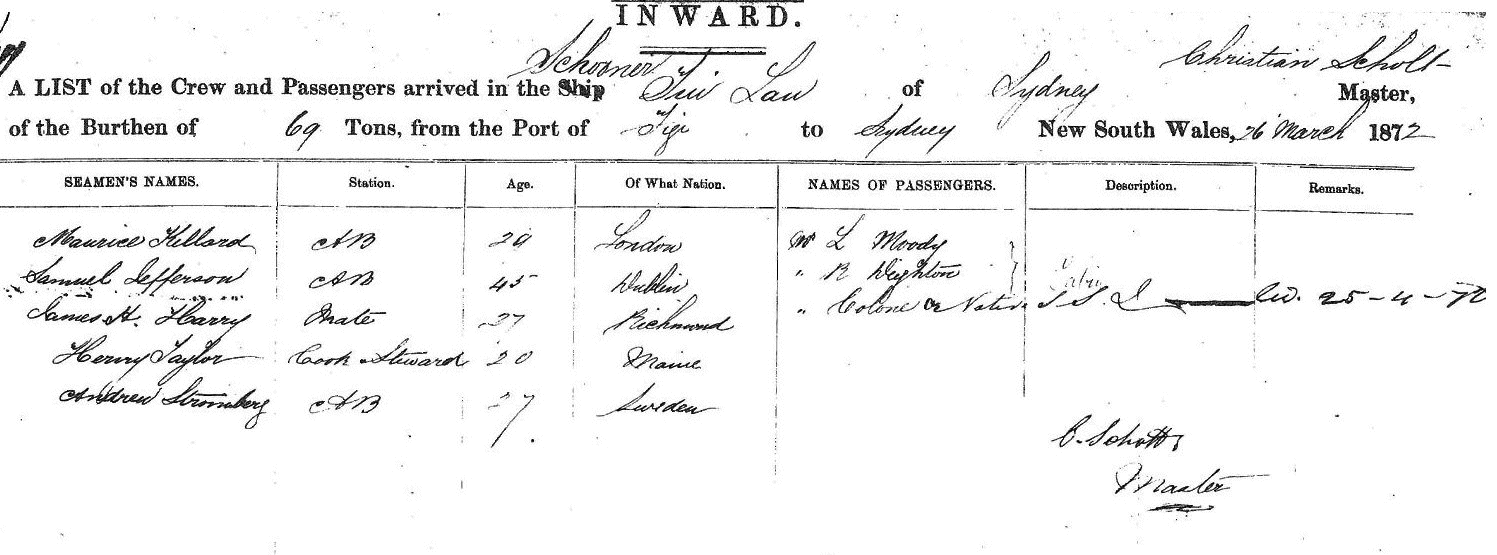 INWARD.
Schooner Christian Scholt
A LIST of the Crew and Passengers arrived in the Ship of Sydney Master,
of the Burthen of 69 Tons, from the Port of Fiji to Sydney New South Wales, 26 March 1872
SEAMEN'S NAMES. Station. Age. Of What Nation. NAMES OF PASSENGERS. Description. Remarks.
Maurice Killard AB 29 London Mr L Moody
Samuel Jefferson AB 45 Dublin " R Deighton
James H. Harry Mate 27 Richmond " Colone or Native 25-4-72
Henry Taylor Cook Steward 20 Maine
Andrew Stromberg AB 27 Sweden
C. Schott
Master